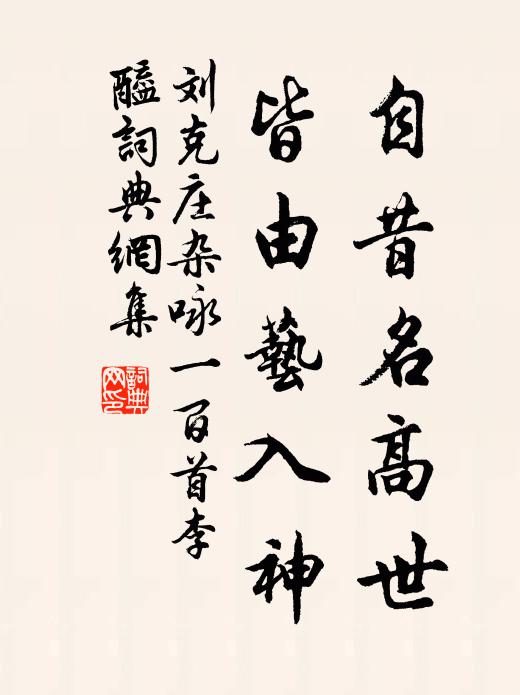 自昔名高世
皆由藝入神
刘克庄杂咏一百首李
醯詞典網集
詞典
网印